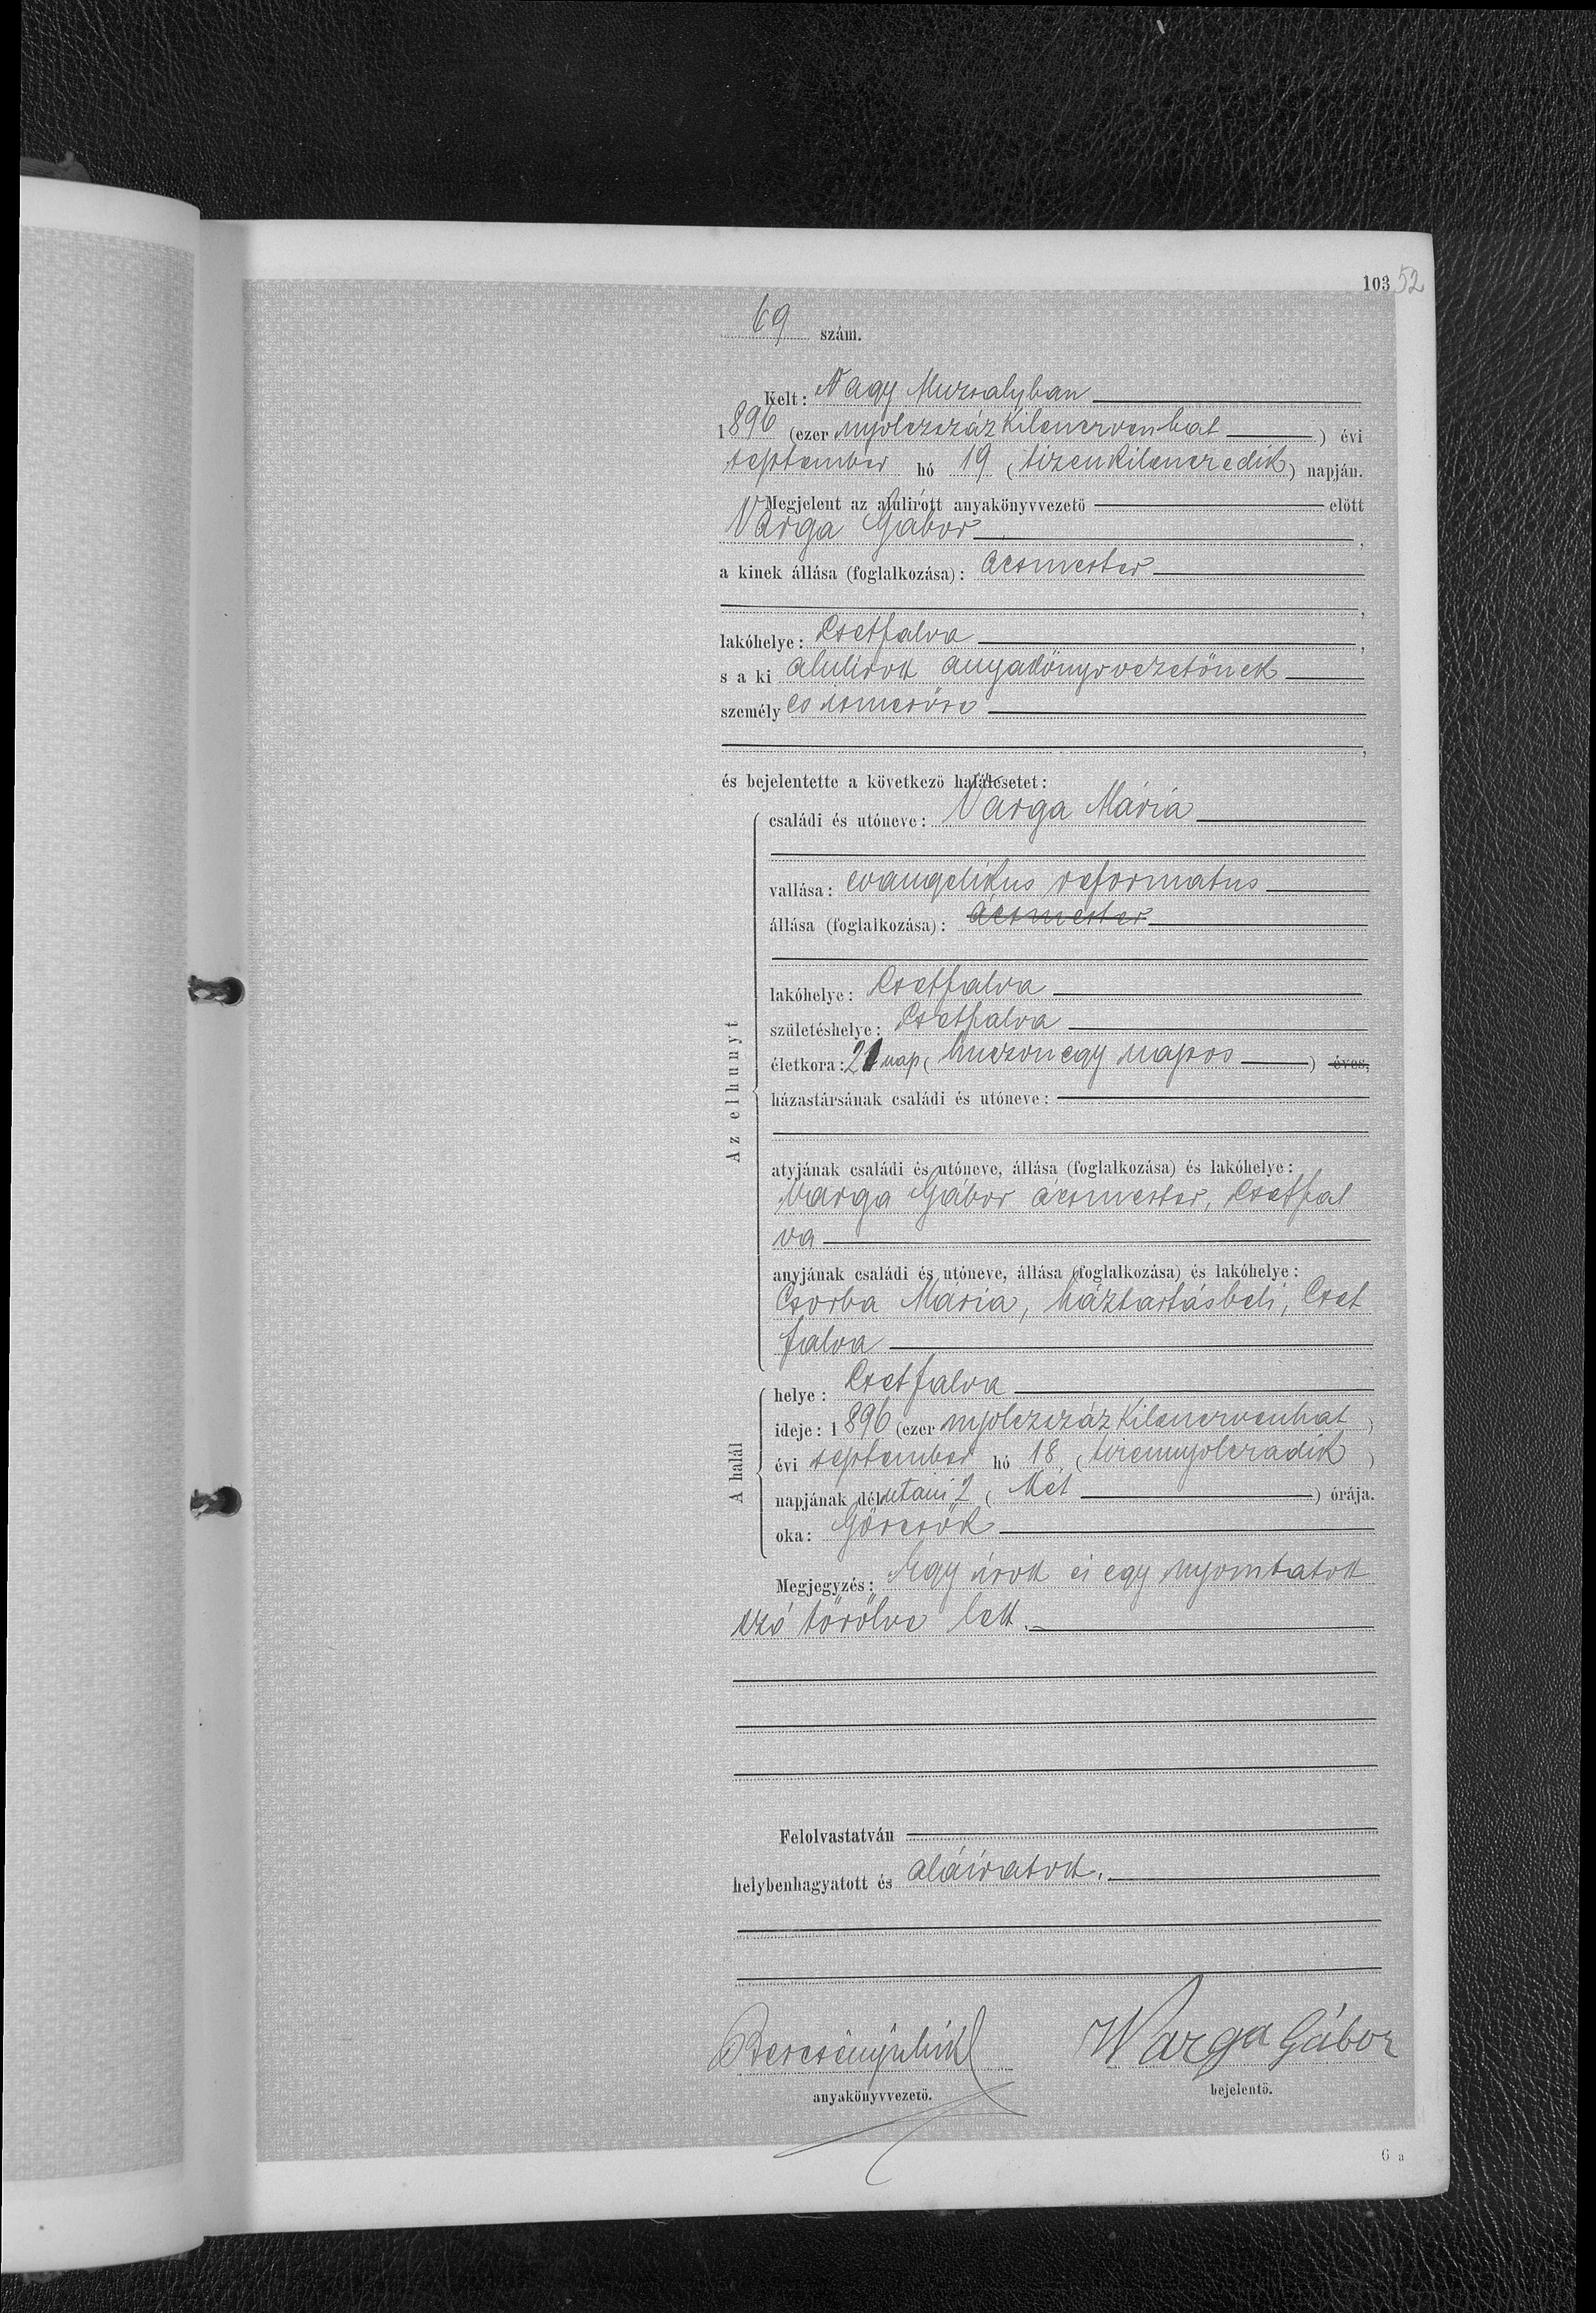 103 52
69 szám.
Kelt: Nagy Muzsalyban
1896 (ezer nyolczszázkilenczvenhat) évi
september hó 19 (tizenkilenczedik) napján.
Megjelent az alulirott anyakönyvvezető előtt
Varga Gábor,
a kinek állása (foglalkozása): ácsmester
,
lakóhelye: Csetfalva,
s a ki alulirott anyakönyvvezetőnek
személyes ismerőse
,
és bejelentette a következő halálesetet:
Az elhunyt
családi és utóneve: Varga Mária
vallása: evangelikus reformatus
állása (foglalkozása): ácsmester
lakóhelye: Csetfalva
születéshelye: Csetfalva
életkora: 21 nap (huszonegy napos) éves,
házastársának családi és utóneve:
atyjának családi és utóneve, állása (foglalkozása) és lakóhelye:
Varga Gábor ácsmester, Csetfal
va
anyjának családi és utóneve, állása (foglalkozása) és lakóhelye:
Csorba Mária, háztartásbeli, Cset
falva
A halál
helye: Csetfalva
ideje: 1896 (ezer nyolczszázkilenczvenhat)
évi september hó 18 (tizennyolczadik)
napjának délutani 2 (Két) órája.
oka: Görcsök
Megjegyzés: Egy irott és egy nyomtatott
szó törölve lett.
Felolvastatván
helybenhagyatott és aláiratott.
Warga Gábor
anyakönyvvezető. bejelentő.
6 a